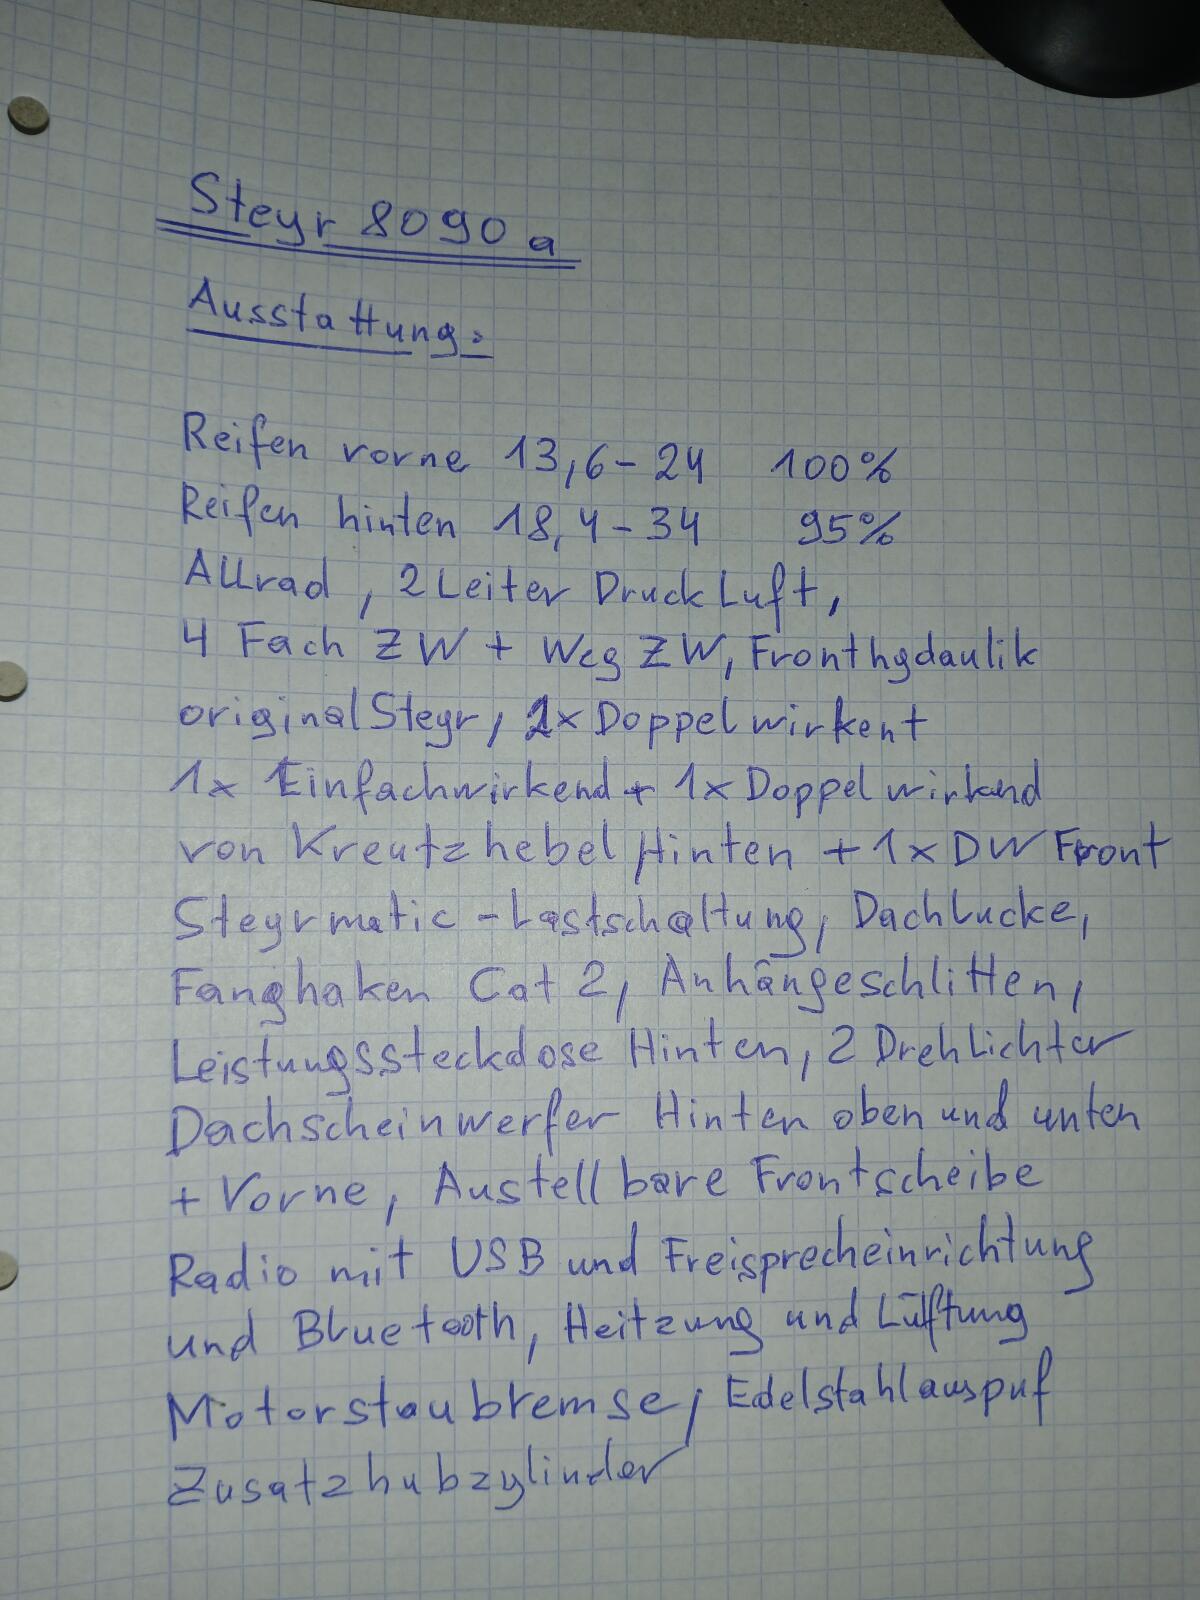 Steyr 8090 a
Ausstattung:
Reifen vorne 13,6-24 100%
Reifen hinten 18,4-34 95%
Allrad, 2 Leiter Druckluft,
4 Fach ZW + Weg ZW, Fronthydaulik
original Steyr, 2x Doppelwirkent
1x Einfachwirkend + 1x Doppelwirkend
von Kreutzhebel Hinten + 1x DW Front
Steyrmatic-Lastschaltung, Dachlucke,
Fanghaken Cat 2, Anhängeschlitten,
Leistungssteckdose Hinten, 2 Drehlichter
Dachscheinwerfer Hinten oben und unten
+ Vorne, Austellbare Frontscheibe
Radio mit USB und Freisprecheinrichtung
und Bluetooth, Heitzung und Lüftung
Motorstaubremse, Edelstahlauspuf
Zusatzhubzylinder